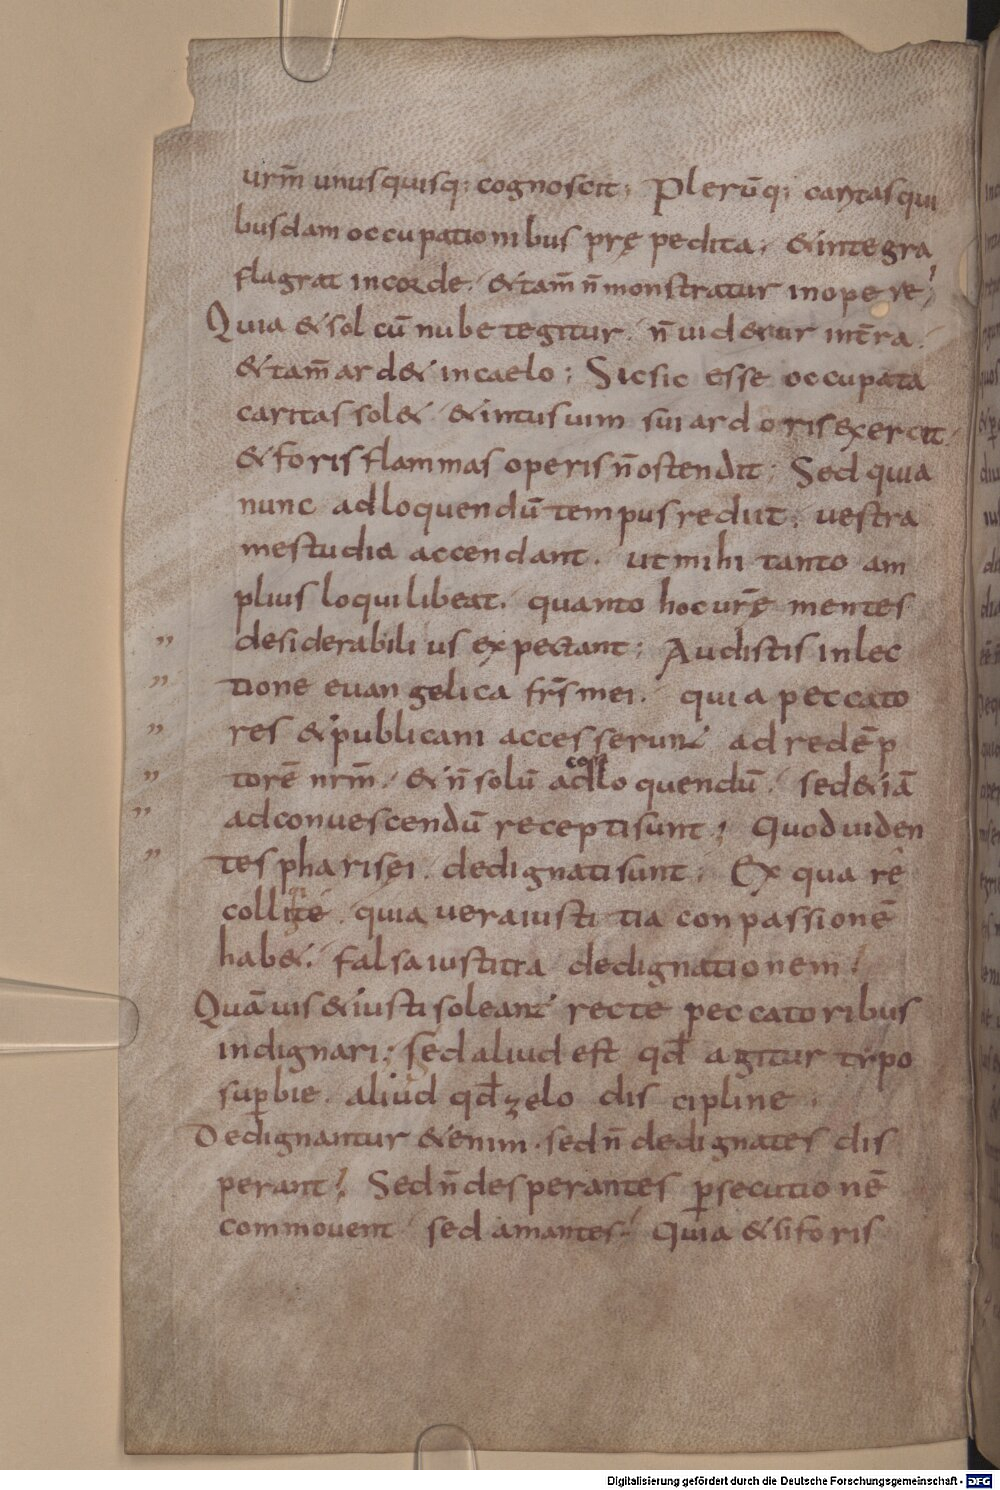 urm̄ unusquisq; cognoscit; Plerūq; caritas qui
busdam occupationibus prę pedita; & integra
flagrat incorde. & tam̄ n̄ monstratur inopere;
Quia & sol cū nube tegitur. n̄ uidetur int̄ra.
& tam̄ ard& incaelo; Sicsic esse occupata
caritas sol& & intus uim sui ardoris exercit.
& foris flammas operis n̄ ostendit; Sed quia
nunc adloquendū tempus rediit; uestra
mestudia accendant. ut mihi tanto am
plius loqui libeat. quanto hoc urę̄ mentes
desiderabilius expectant; Audistis inlec
tione euangelica frs̄ mei. quia peccato
res & publicani accesserunt adredēp
torē nrm̄. & n̄ solū ad colloquendū. sed &iā
adconuescendū recepti sunt; Quod uiden
tes pharisęi. dedignati sunt; Ex qua rē
collig̣ite. quia uera iustitia conpassionē
hab&. falsa iustitia dedignationem;
Quāuis & iusti soleant recte peccatoribus
indignari; sed aliud est qd̄ agitur typo
sup̄bie. aliud qd̄ zelo discipline.
Dedignantur &enim. sed n̄ dedignates dis
perant; Sed n̄ desperantes p̄secutionē
commouent sed amantes; Quia & si foris
Digitalisierung gefördert durch die Deutsche Forschungsgemeinschaft - DFG